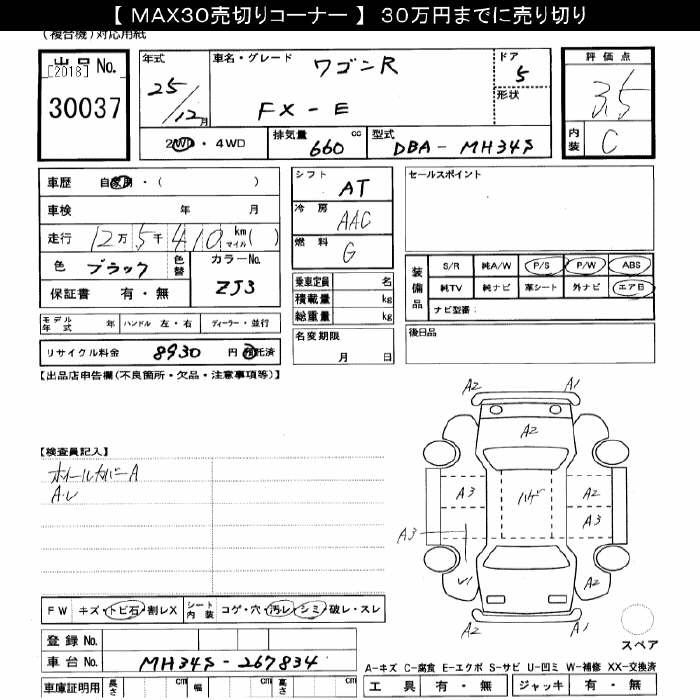 【 MAX30売切りコーナー 】 30万円までに売り切り
(複合機)対応用紙
出品 No.
[2018]
30037
年式
25/12月
車名・グレード
ワゴンR
FX-E
ドア
5
形状
評価点
3.5
内装
C
2WD・4WD
排気量 660 cc
型式
DBA-MH34S
車歴 自家用・( )
車検 年 月
走行 12万5千410 km マイル( )
色 ブラック
色替
カラーNo.
ZJ3
保証書 有・無
モデル年式 年 ハンドル 左・右 ディーラー・並行
リサイクル料金 8930 円 預託済
シフト AT
冷房 AAC
燃料 G
乗車定員 名
積載量 kg
総重量 kg
名変期限
月 日
セールスポイント
装備品
S/R 純A/W P/S P/W ABS
純TV 純ナビ 革シート 外ナビ エアB
ナビ型番:
後日品
【出品店申告欄(不良箇所・欠品・注意事項等)】
【検査員記入】
ホイールカバーA
A.U
A2 A1
A2
A3 ハゲ A2
A3
A3
A2
A2 A1
FW キズ・トビ石・割レX
シート内装 コゲ・穴・汚レ・シミ・破レ・スレ
登録 No.
車台 No. MH34S-267834
車庫証明用 長さ cm 幅 cm 高さ cm
スペア
A-キズ C-腐食 E-エクボ S-サビ U-凹ミ W-補修 XX-交換済
工具 有・無 ジャッキ 有・無